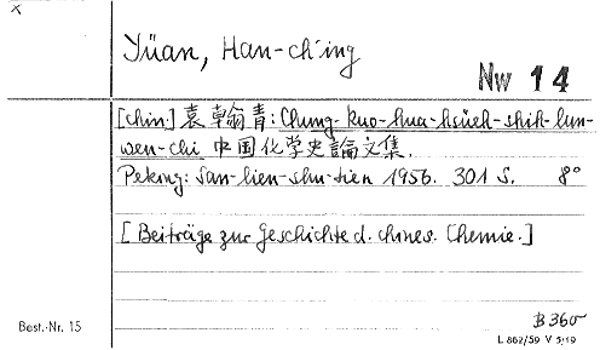 x
Yüan, Han-ch'ing
Nw 14
[chin.] 袁翰青: Chung-kuo-hua-hsüeh-shih-lun-
wen-chi 中国化学史論文集.
Peking: San-lien-shu-tien 1956. 301 S. 8°
[Beiträge zur Geschichte d. chines. Chemie.]
B 360
Best.-Nr. 15
L 862/59 V 5/19